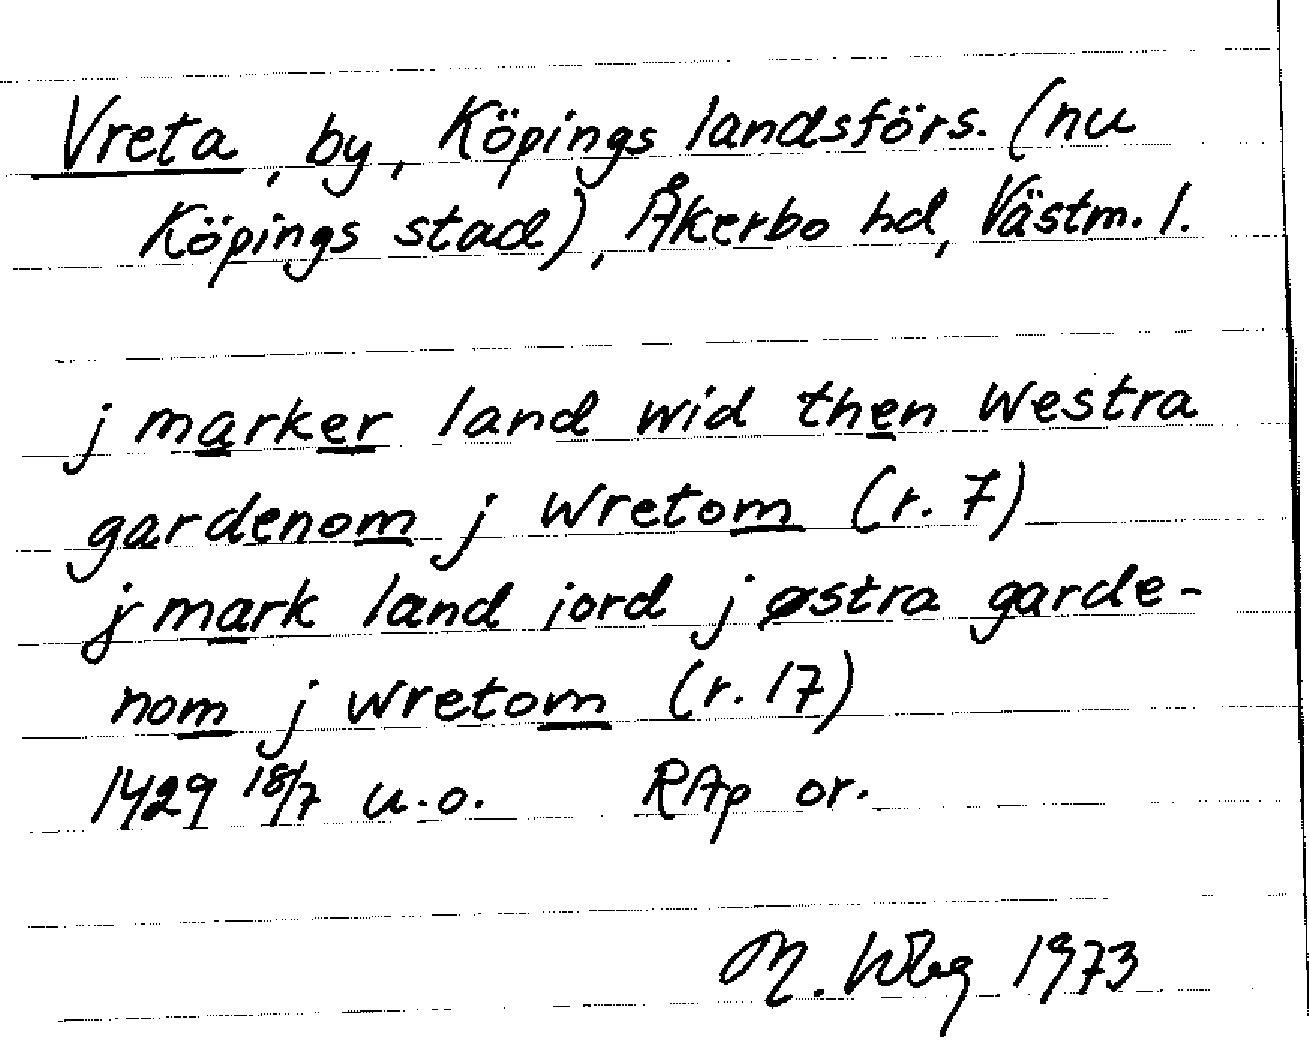 Vreta, by, Köpings landsförs. (nu
Köpings stad), Åkerbo hd, Västm. l.
j marker land wid then westra
gardenom j wretom (r. 7)
j mark land iord j østra garde-
nom j wretom (r. 17)
1429 18/7 u.o. RAp or.
M. Wbg 1973